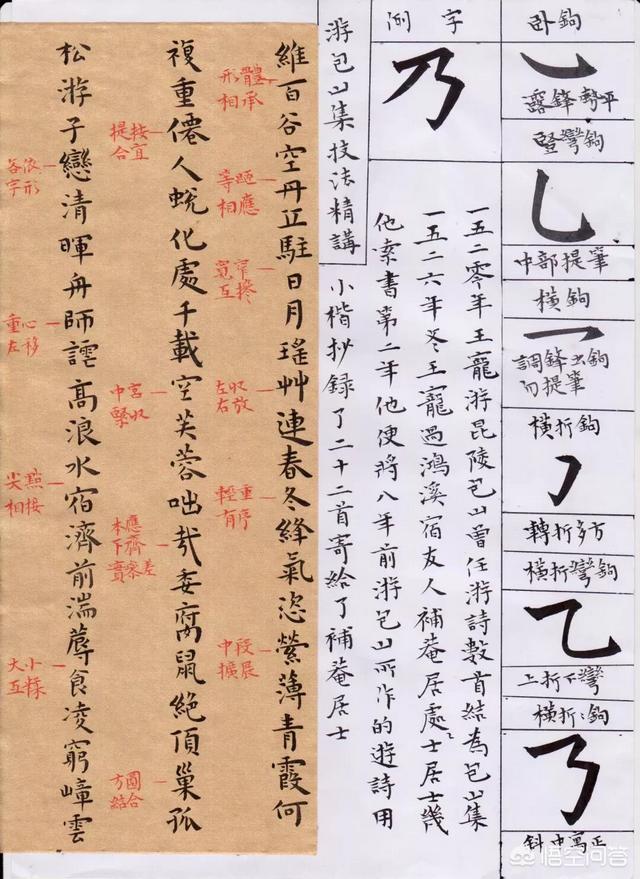 卧鉤
露鋒勢平
竪彎鉤
中部提筆
橫鉤
調鋒出鉤
勿提筆
橫折鉤
轉折多方
橫折彎鉤
上折下彎
橫折:鉤
斜中寓正
字例
乃
一五二零年王寵游昆陵包山曾任游詩數首結為包山集
一五二六年冬王寵過鴻溪宿友人補菴居處士居士幾
他索書第二年他便將八年前游包山所作的遊詩用
小楷抄錄了二十二首寄給了補菴居士
游包山集技法精講
維百谷空丹正駐日月瑤艸連春冬絳氣恣縈薄青霞何
形體
相承
相應
寬窄
左右
收放
輕重
有序
中段
擴展
複重僊人蛻化處千載空芙蓉咄哉委腐鼠絕頂巢孤
提接
合宜
中宮
緊收
本應
下齊
方圓
結合
松游子戀清暉舟師詫高浪水宿濟前湍蓐食凌窮嶂雲
各依
字形
重心
左移
尖點
相接
大小
悟空问答